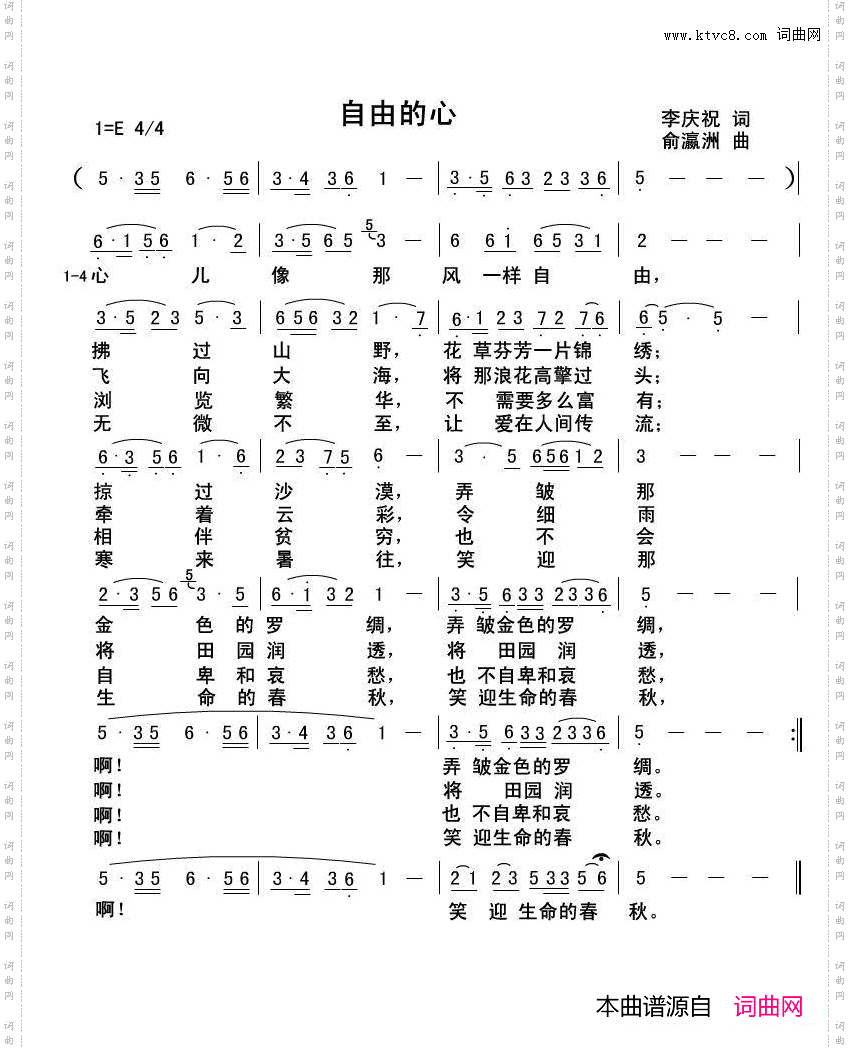 www.ktvc8.com 词曲网
自由的心
1=E 4/4
李庆祝 词
俞瀛洲 曲
( 5 · 35 6 · 56 | 3·4 36 1 — | 3·5 63 2336 | 5 — — — )
6·1 56 1·2 | 3·565 5 3 — | 6 6i 6531 | 2 — — — |
1-4心 儿 像 那 风 一样 自 由,
3·5 23 5·3 | 656 32 1·7 | 6·1 23 72 76 | 65 · 5 — |
拂 过 山 野, 花 草芬芳一片锦 绣;
飞 向 大 海, 将 那浪花高擎过 头;
浏 览 繁 华, 不 需要多么富 有;
无 微 不 至, 让 爱在人间传 流;
6·3 56 1·6 | 23 75 6 — | 3 · 5 656112 | 3 — — — |
掠 过 沙 漠, 弄 皱 那
牵 着 云 彩, 令 细 雨
相 伴 贫 穷, 也 不 会
寒 来 暑 往, 笑 迎 那
2·3 56 5 3·5 | 6·i 32 1 — | 3·5 633 2336 | 5 — — — |
金 色 的 罗 绸, 弄 皱金色的罗 绸,
将 田 园 润 透, 将 田园 润 透,
自 卑 和 哀 愁, 也 不自卑和哀 愁,
生 命 的 春 秋, 笑 迎生命的春 秋,
5·35 6·56 | 3·4 36 1 — | 3·5 633 2336 | 5 — — — :‖
啊! 弄 皱金色的罗 绸。
啊! 将 田园 润 透。
啊! 也 不自卑和哀 愁。
啊! 笑 迎生命的春 秋。
5·35 6·56 | 3·4 36 1 — | 21 23 533 56 | 5 — — — ‖
啊! 笑 迎 生命的春 秋。
本曲谱源自 词曲网